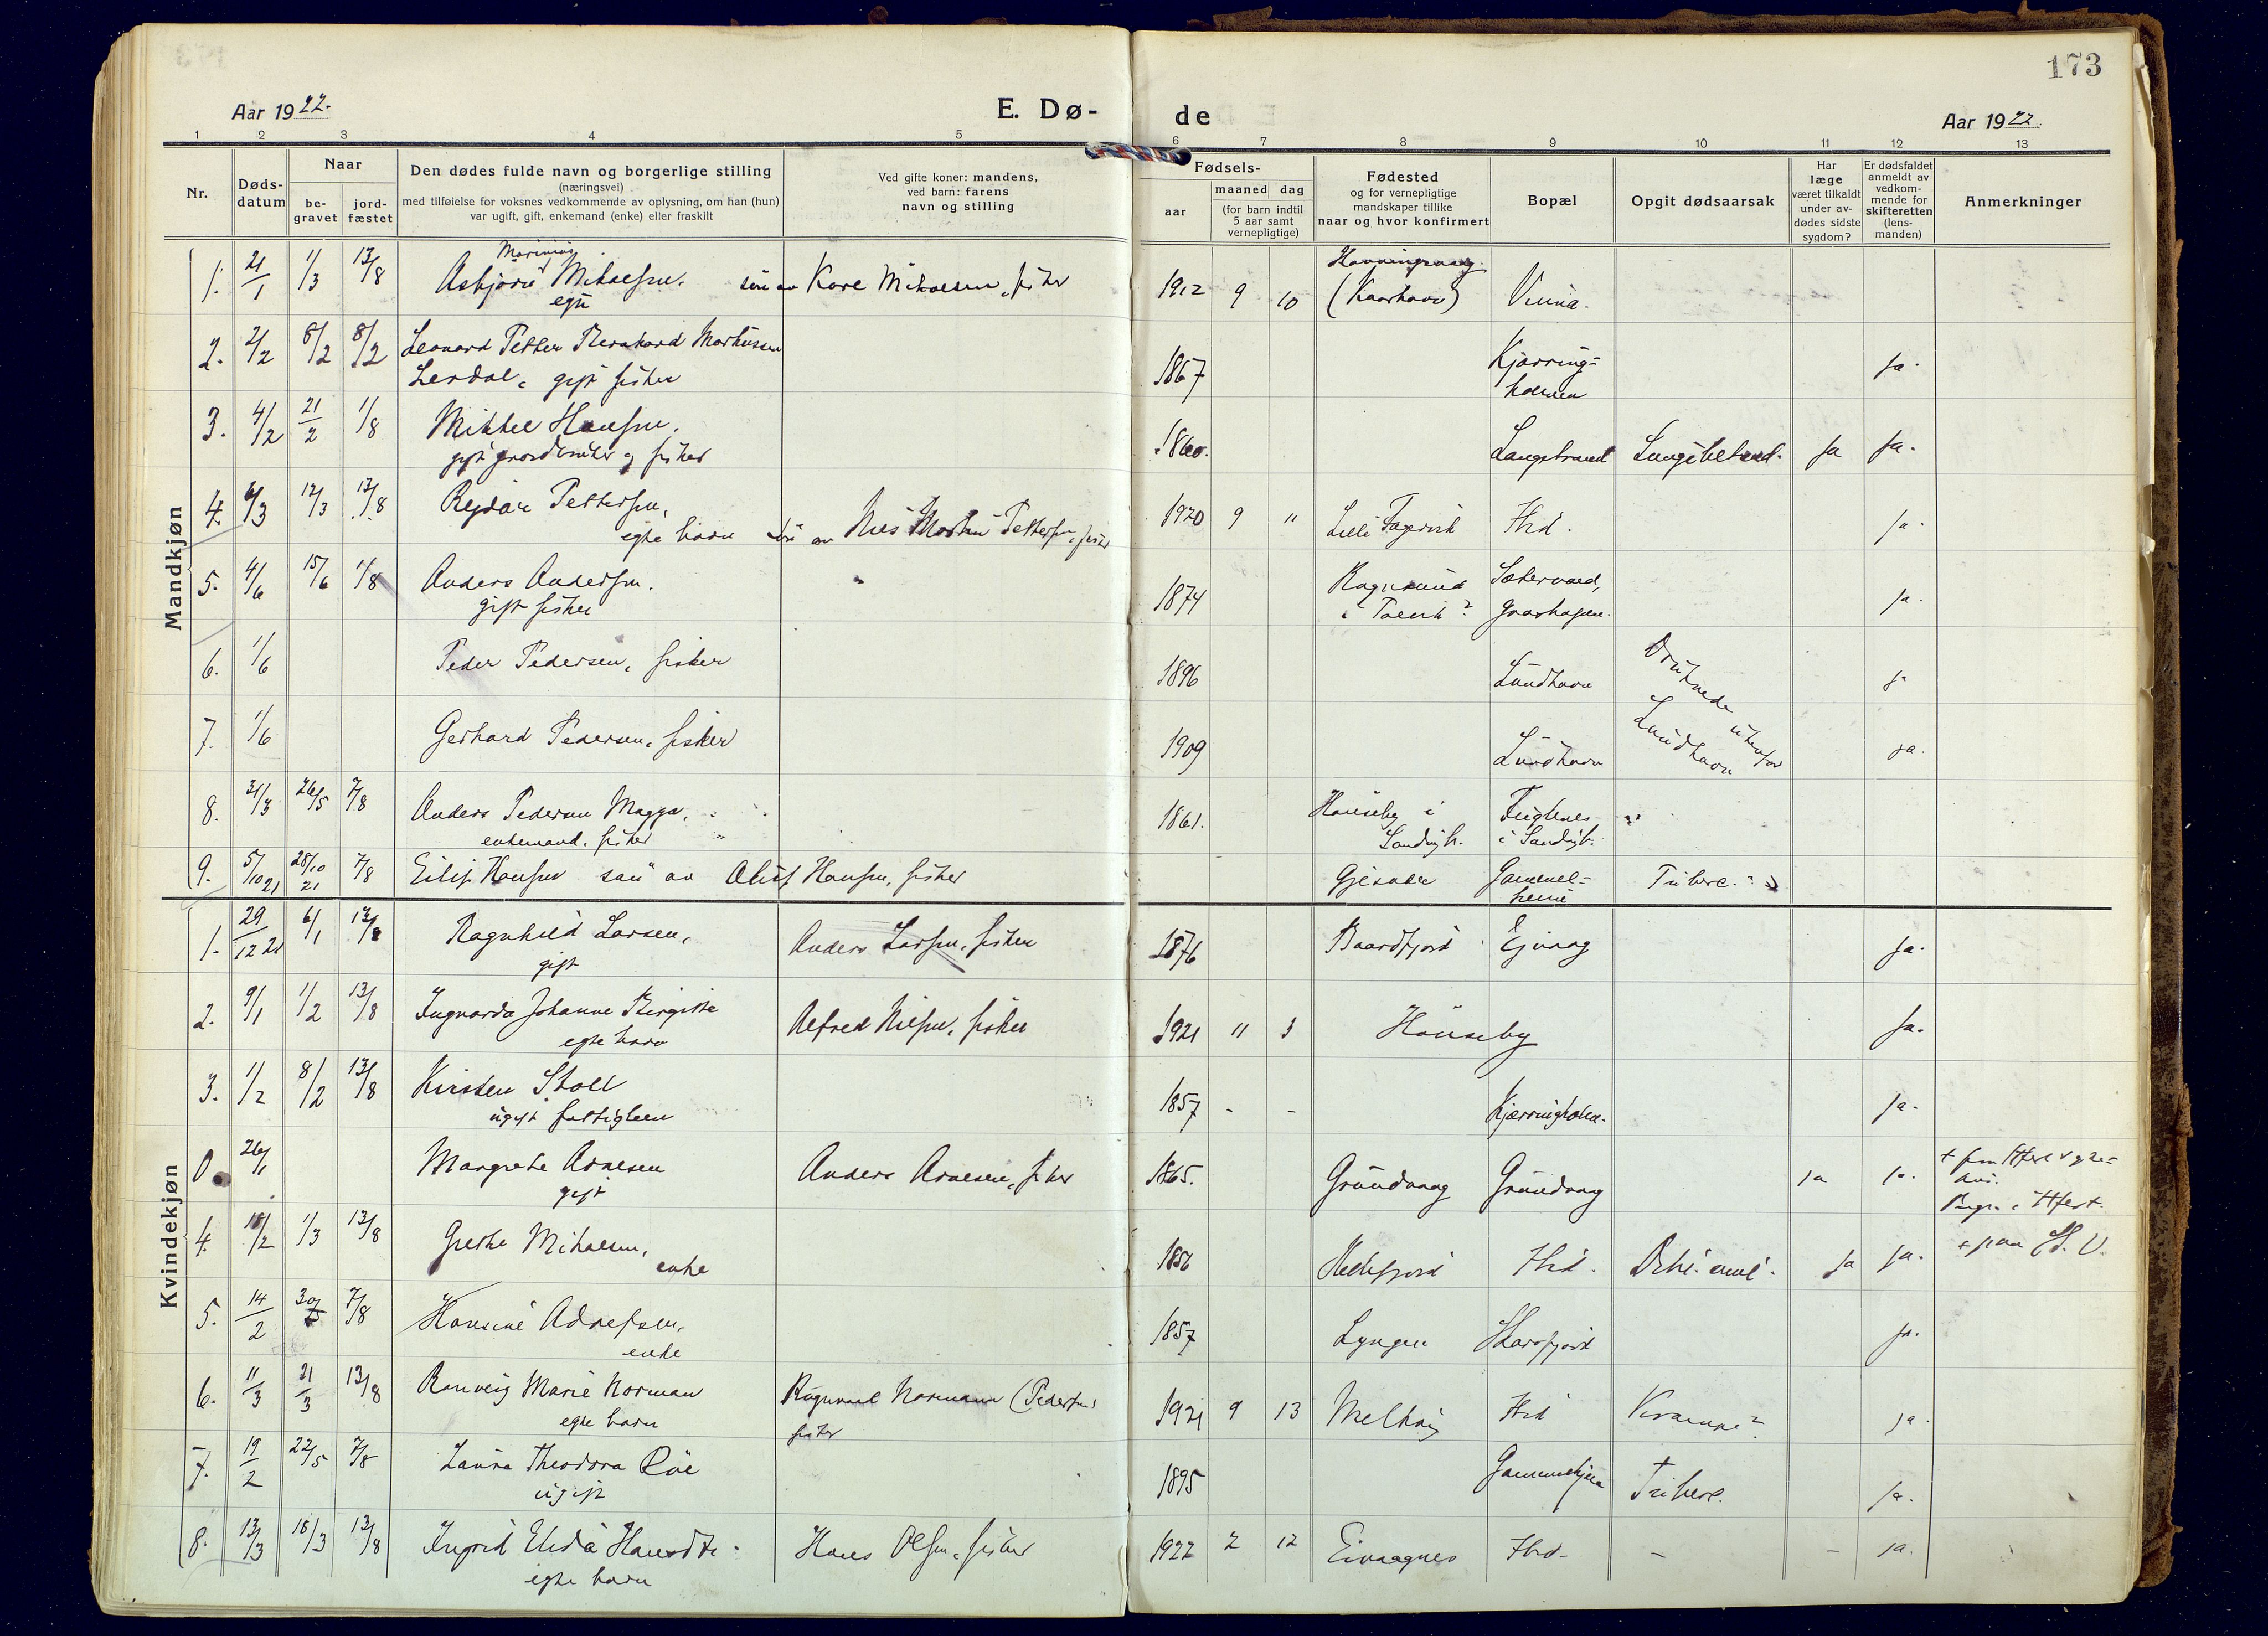 173
Aar 1922.
E. Dø-
de
Aar 1922.
1 2 3 4 5 6 7 8 9 10 11 12 13
Nr.
Døds-
datum
Naar
be-
gravet
jord-
fæstet
Den dødes fulde navn og borgerlige stilling
(næringsvei)
med tilføielse for voksnes vedkommende av oplysning, om han (hun)
var ugift, gift, enkemand (enke) eller fraskilt
Ved gifte koner: mandens,
ved barn: farens
navn og stilling
Fødsels-
aar
maaned dag
(for barn indtil
5 aar samt
vernepligtige)
Fødested
og for vernepligtige
mandskaper tillike
naar og hvor konfirmert
Bopæl
Opgit dødsaarsak
Har
læge
været tilkaldt
under av-
dødes sidste
sygdom?
Er dødsfaldet
anmeldt av
vedkom-
mende for
skifteretten
(lens-
manden)
Anmerkninger
Mandkjøn
1. 21/1 1/3 13/8 Asbjørn Mikalsen, søn av Kare Mikalsen, fisker 1912 9 10 Honningsvaag
egte (Kaarhavn)
2. 2/2 8/2 8/2 Leonard Petter Bernhard Markussen 1867 Kjærring- ja.
Lerdal, gift fisker holmen
3. 4/2 21/2 1/8 Mikkel Hansen, 1860. Langstrand Lungebetend. ja ja.
gift gaardbruker og fisker
4. 6/3 12/3 13/8 Reidar Pettersen, 1920 9 11 Lille Fagervik Ibid. ja.
egte barn søn av Nils Martin Pettersen, fisker
5. 4/6 15/6 1/8 Anders Andersen. 1874 ja.
gift fisker
6. 1/6 Peder Pedersen, fisker 1896 Lundhavn Druknede utenfor Lundhavn ja
7. 1/6 Gerhard Pedersen, fisker 1909 Lundhavn ja.
8. 31/3 26/5 7/8 Anders Pedersen Magga, 1861. Hønseby i Fuglenes
enkemand, fisker Sandøyb. i Sandøyb.
9. 5/10 21 28/10 21 7/8 Eilif Hansen søn av Oluf Hansen, fisker Gjesvær Gammel- Tuberc.
Kvindekjøn
1. 29/12 21 6/1 13/8 Ragnhild Larsen, Anders Larsen, fisker 1876 Baardfjord Ejvaag ja.
gift
2. 9/1 1/2 13/8 Ingvarda Johanne Birgitte Alfred Nilsen, fisker 1921 11 3 Hønseby ja.
egte barn
3. 1/2 8/2 13/8 Kirsten Stoll 1857 - - Kjærringholm. ja.
ugift fattiglem
0 26/1 Margrethe Arnesen Anders Arnesen, fisker 1865. Grundvaag Grundvaag ja ja.
gift Begr. i Hfest.
4. 18/2 1/3 13/8 Grethe Mikalsen, 1856 Kjelfjord Ibid. ja ja.
enke
5. 14/2 30/5 7/8 Hansine Adnefsen, 1857 Lyngen Skarsfjord ja.
enke
6. 11/3 21/3 13/8 Ranveig Marie Norman Ragnvald Normann (Pedersen) 1921 9 13 Melkøy Ibid Krampe? ja
egte barn fisker
7. 19/2 22/5 7/8 Laura Theodora Roe 1895 Tuberc. ja.
ugift
8. 13/3 18/3 13/8 Ingrid Elida Hansdtr. Hans Olsen, fisker 1922 2 12 Eivaagnes Ibid - - ja.
egte barn